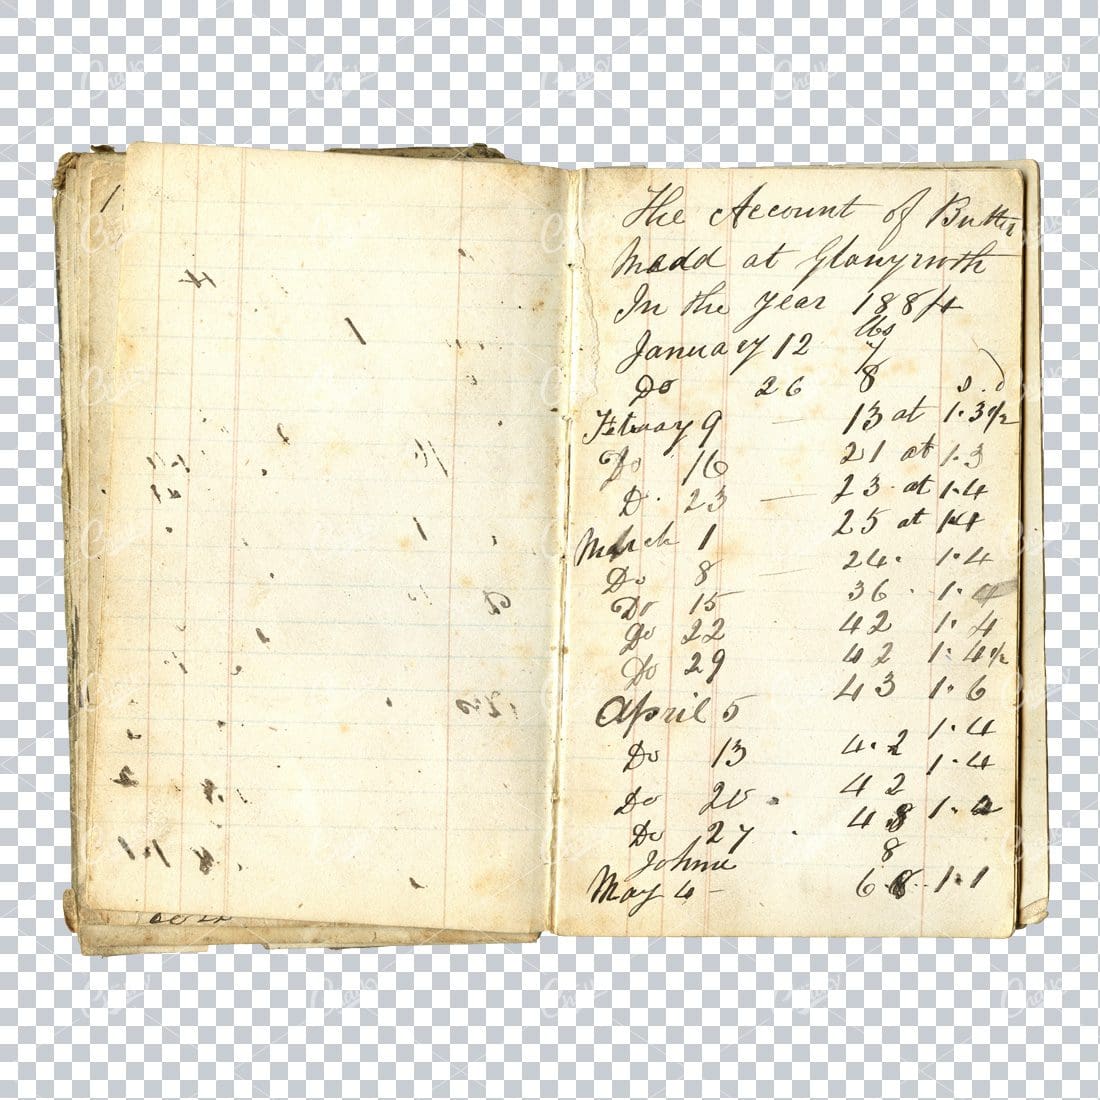 The Account of Butter
Madd at Glanyrwth
In the year 1884
lbs
January 12 7
Do 26 8 s. d
Februay 9 13 at 1.3½
Do 16 21 at 1.3
D. 23 23. at 1.4
March 1 25 at 1.4
Do 8 24. 1.4
Do 15 36. 1.4
Do 22 42 1.4
Do 29 42 1.4½
April 5 43 1.6
1.4
Do 13 4.2 1.4
Do 20. 42
Do 27. 48 1.2
8
May 4 - 1.1